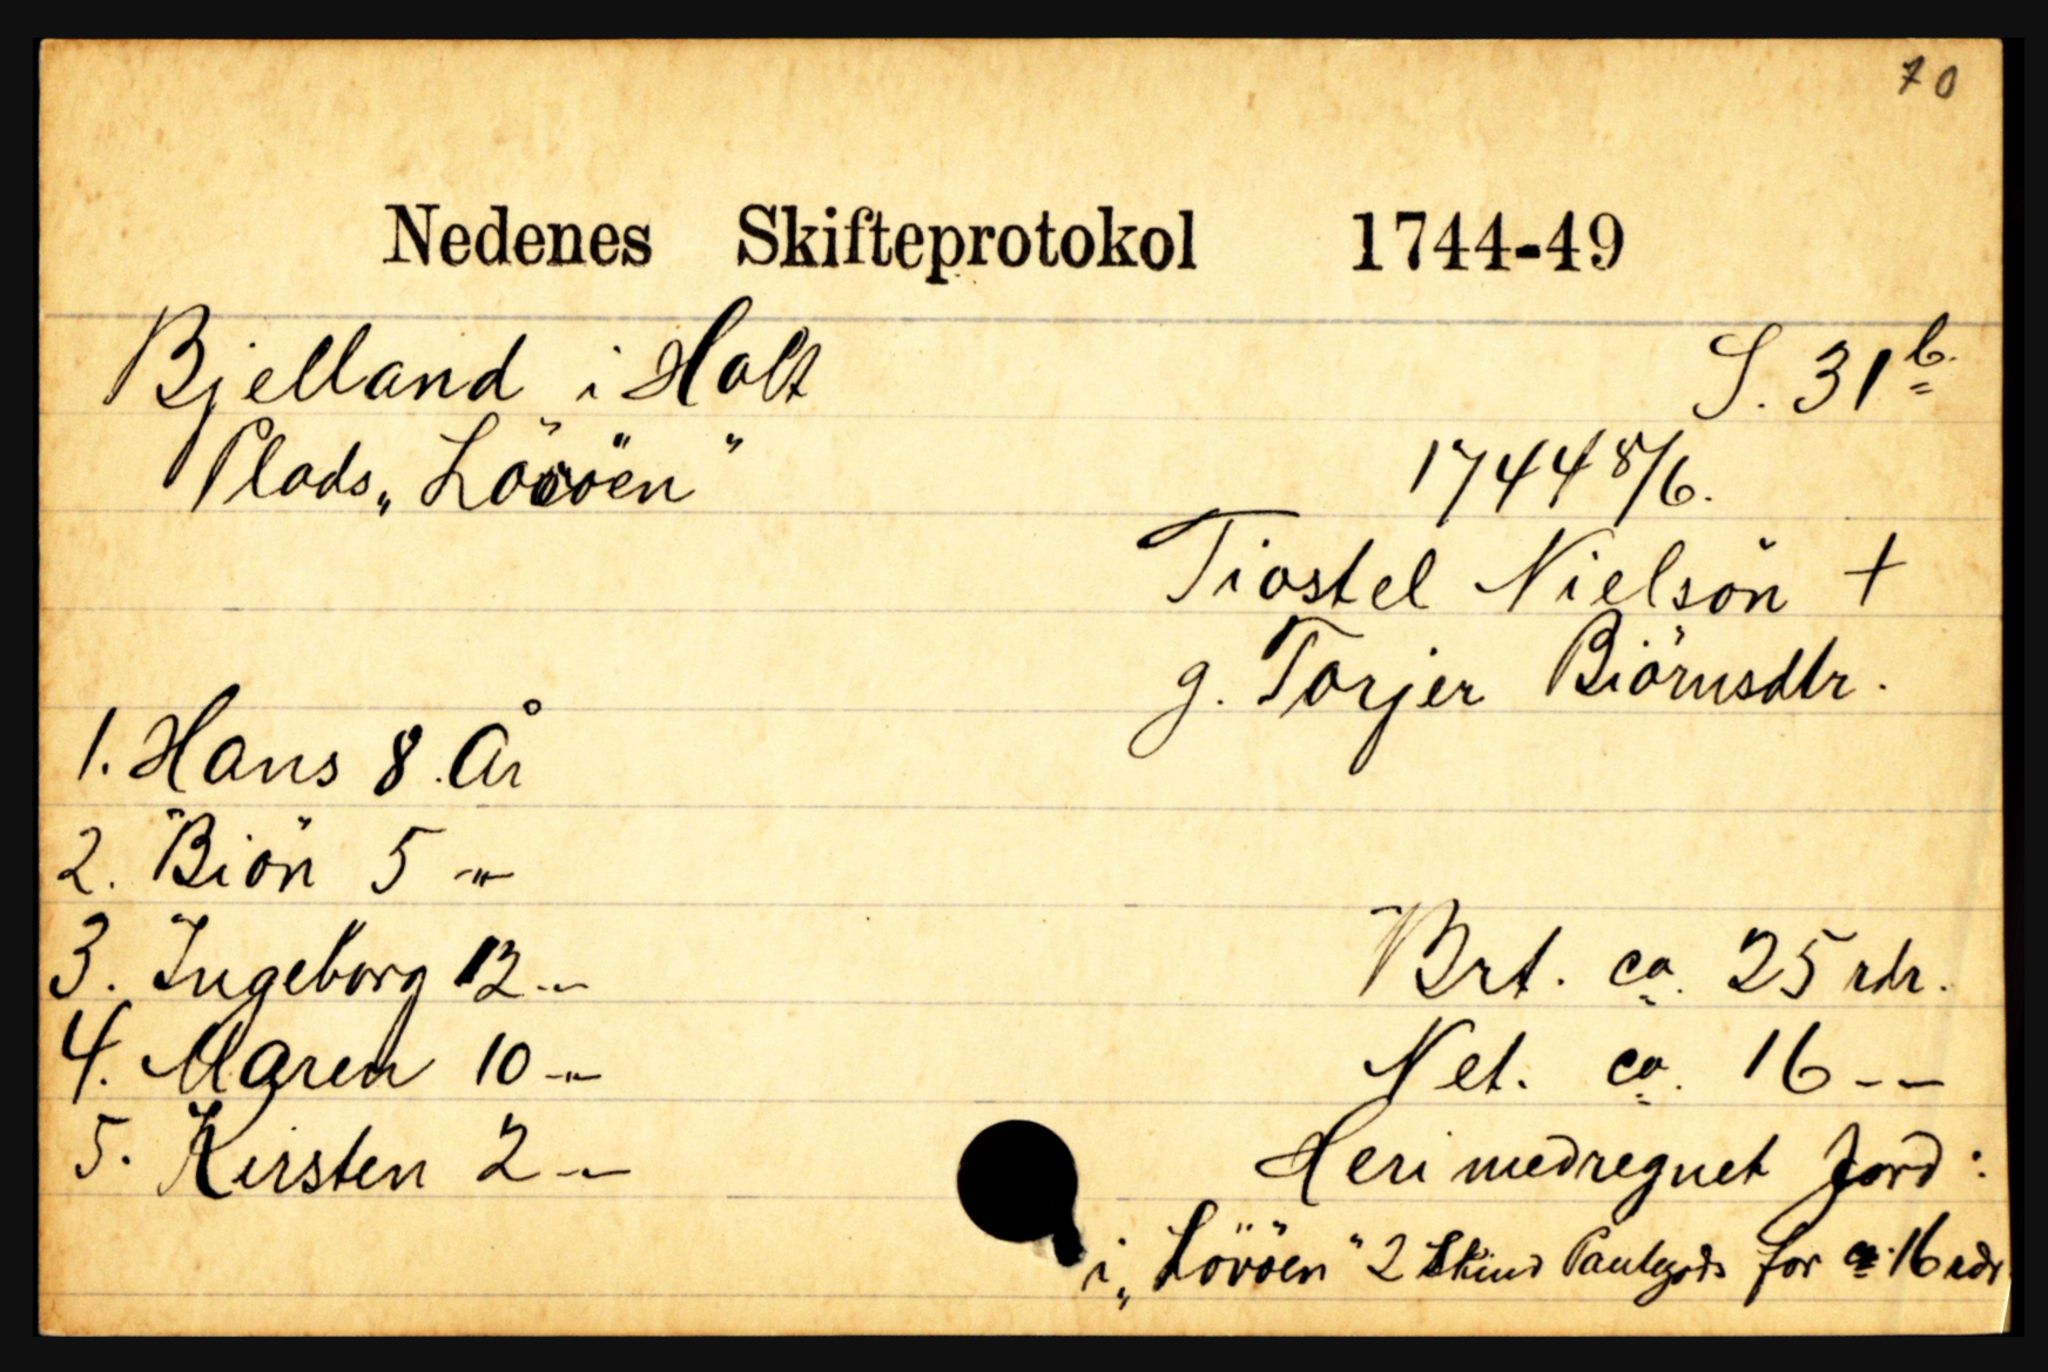 70
Nedenes Skifteprotokol 1744-49
Bjelland i Holt S. 31b.
Plads „Lövöen" 1744 8/6.
Tiostel Nielsön +
g. Torjer Biörnsdtr.
1. Hans 8. År
2. Biön 5 -"-
3. Ingeborg 12 -"-
4. Maren 10 -"-
5. Kirsten 2 -"-
Brt. ca. 25 rdr.
Net. ca. 16 - -
Heri medregnet Jord:
i „Lövöen" 2 Skind Pantegods for ca. 16 rdr